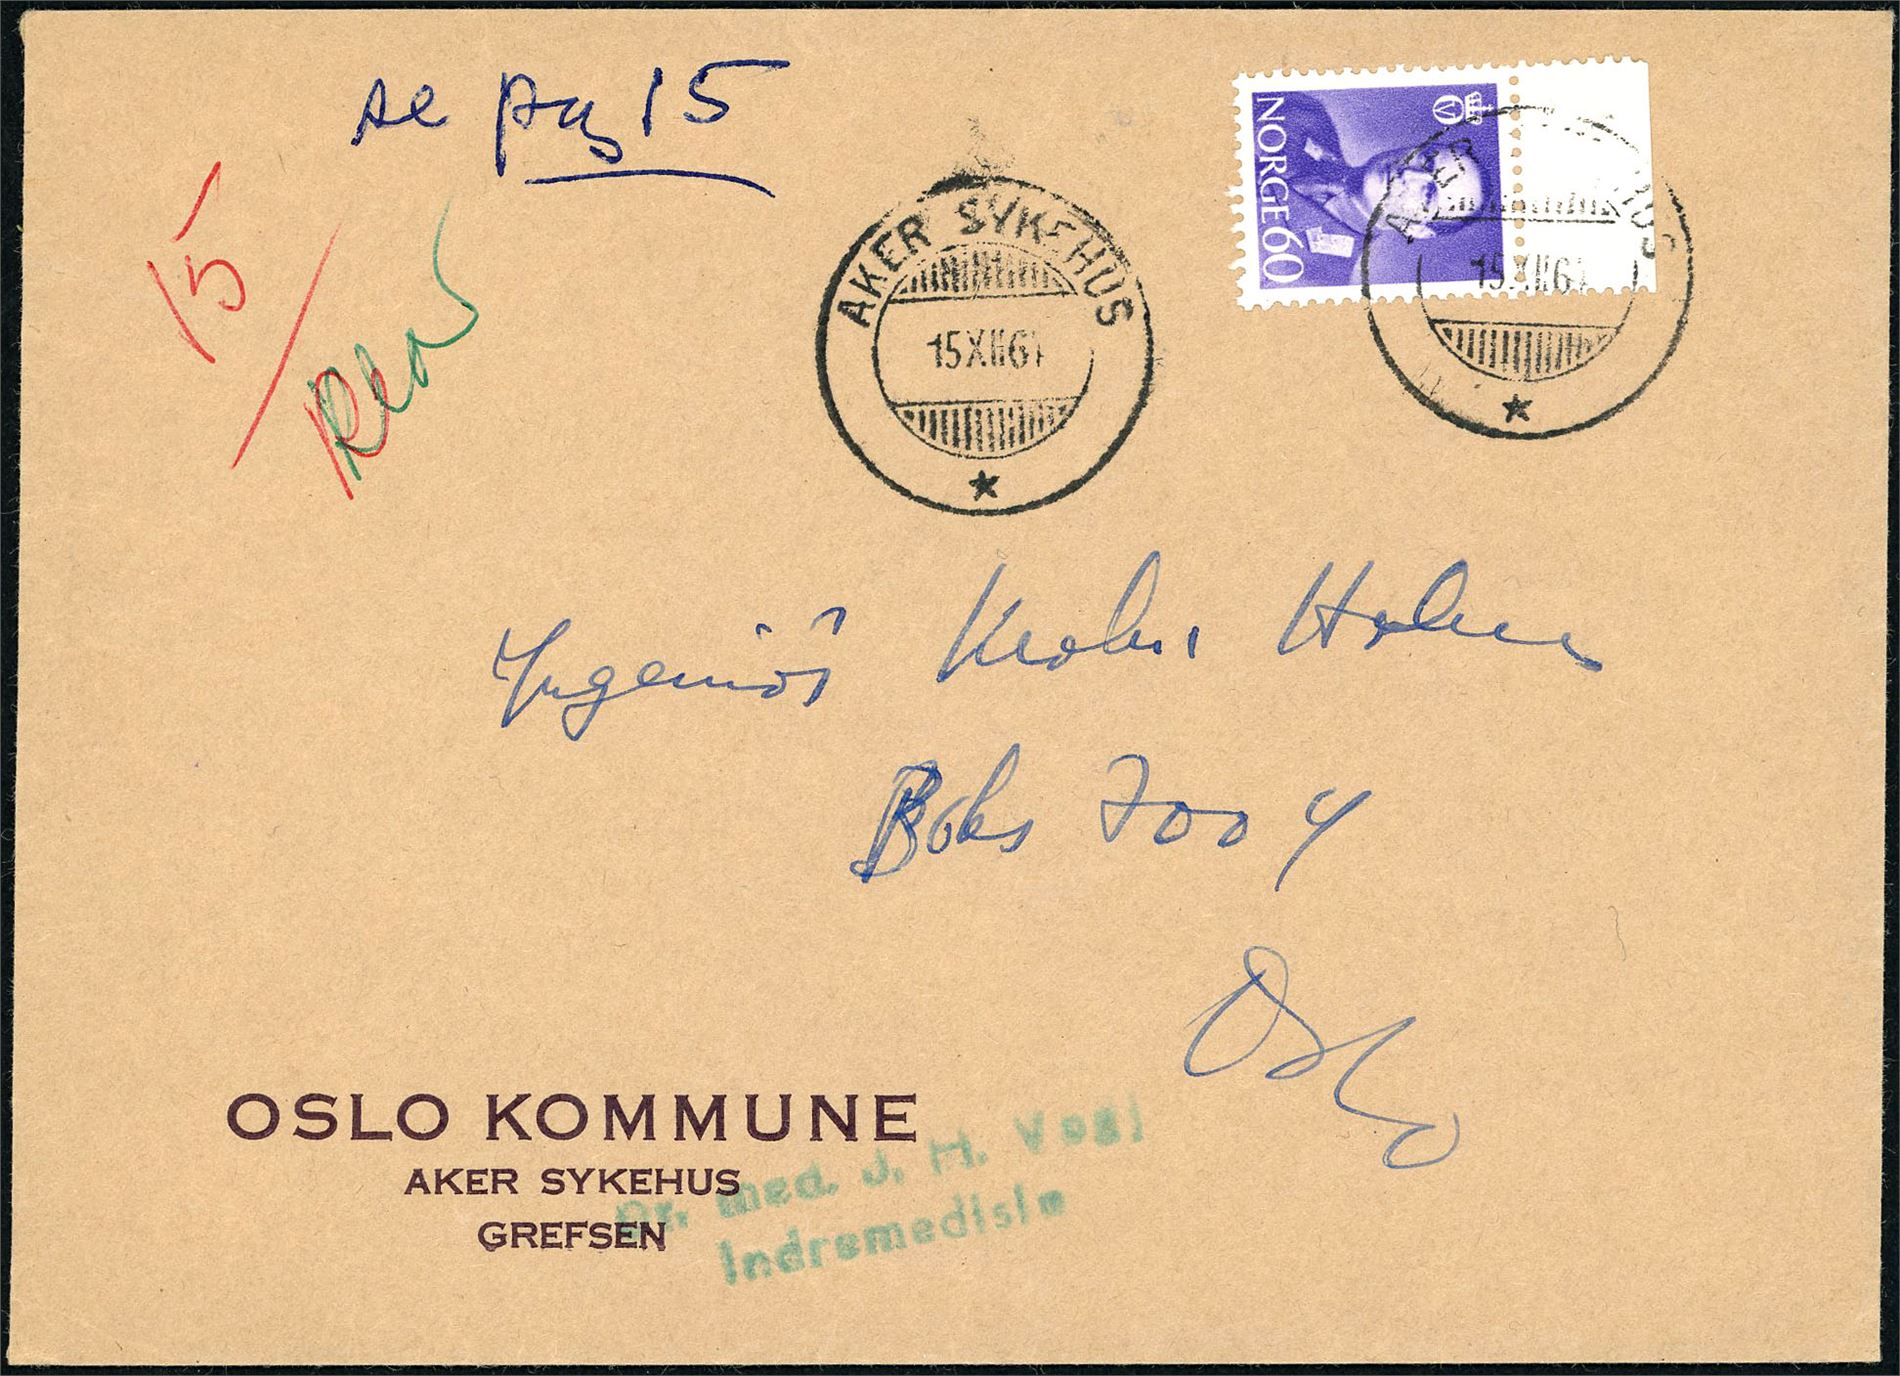 se pag 15
15
Klar
NORGE 60
V
AKER SYKEHUS
15 XII 61
AKER SYKEHUS
15 XII 61
Ingeniør
Boks 7004
Oslo
OSLO KOMMUNE
AKER SYKEHUS
GREFSEN
Dr. med. J. H. Vogt
Indremedisin